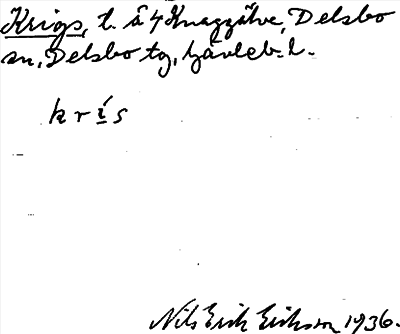 Krigs, t. å 4 Knaggälve, Delsbo
sn, Delsbo tg, Gävleb. l.
kris
Nils Erik Erikson 1936.